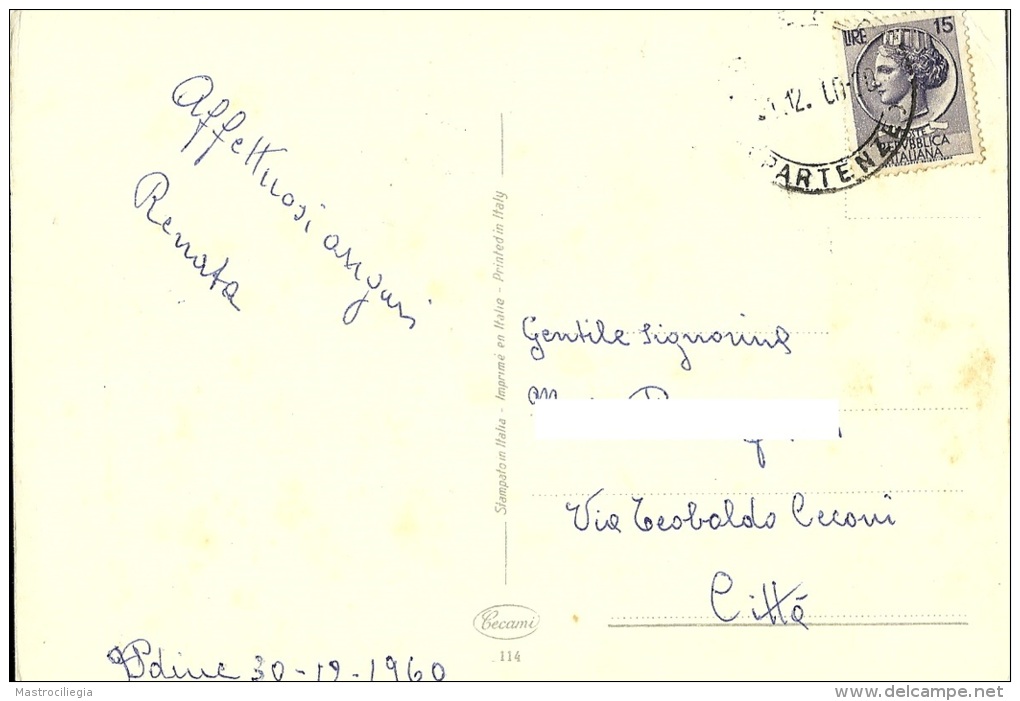 Affettuosi auguri
Renata
Udine 30-12-1960
Stampato in Italia - Imprimé en Italie - Printed in Italy
Cecami
114
LIRE 15
POSTE
REPVBBLICA
ITALIANA
12.
PARTENZE
Gentile Signorina
Via Teobaldo Ciconi
Città
Mastrociliegia
www.delcampe.net